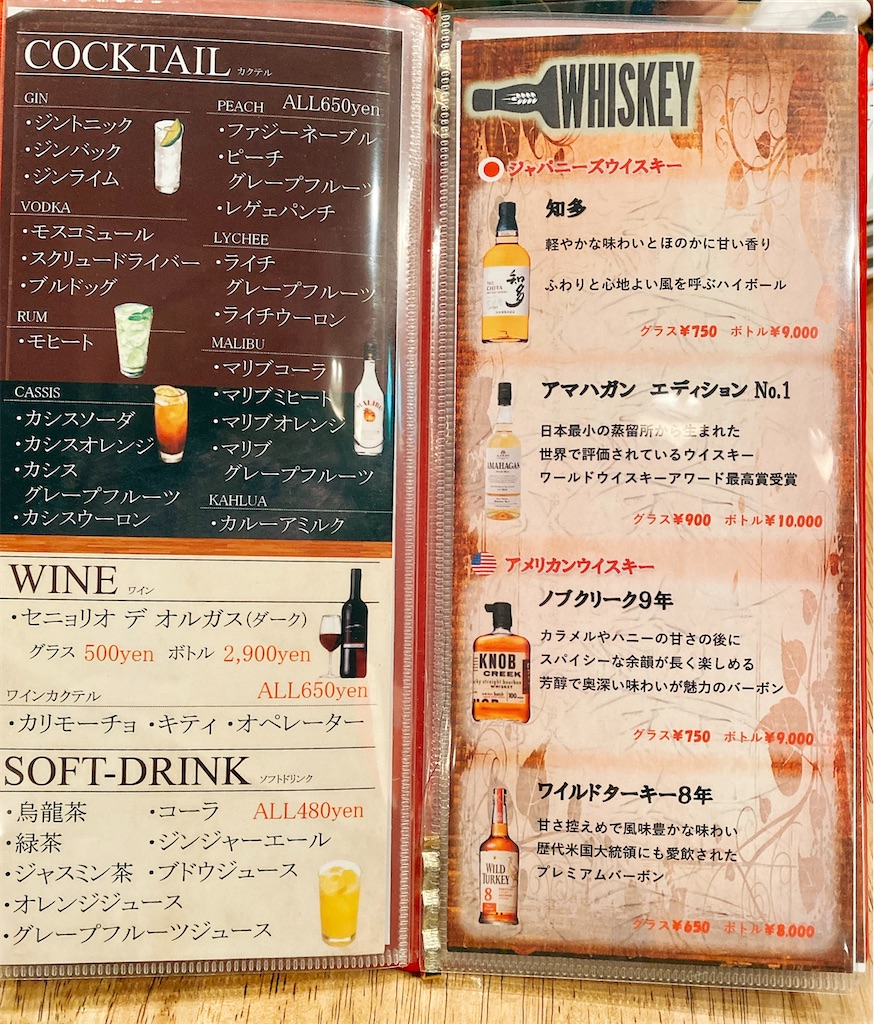 COCKTAIL カクテル
GIN
・ジントニック
・ジンバック
・ジンライム
VODKA
・モスコミュール
・スクリュードライバー
・ブルドッグ
RUM
・モヒート
CASSIS
・カシスソーダ
・カシスオレンジ
・カシス
グレープフルーツ
・カシスウーロン
PEACH ALL650yen
・ファジーネーブル
・ピーチ
グレープフルーツ
・レゲェパンチ
LYCHEE
・ライチ
グレープフルーツ
・ライチウーロン
MALIBU
・マリブコーラ
・マリブミヒート
・マリブオレンジ
・マリブ
グレープフルーツ
KAHLUA
・カルーアミルク
MALIBU
WINE ワイン
・セニョリオ デ オルガス(ダーク)
グラス 500yen ボトル 2,900yen
ワインカクテル ALL650yen
・カリモーチョ ・キティ ・オペレーター
SOFT-DRINK ソフトドリンク
・烏龍茶 ・コーラ ALL480yen
・緑茶 ・ジンジャーエール
・ジャスミン茶 ・ブドウジュース
・オレンジジュース
・グレープフルーツジュース
WHISKEY
ジャパニーズウイスキー
知多
軽やかな味わいとほのかに甘い香り
ふわりと心地よい風を呼ぶハイボール
グラス¥750 ボトル¥9,000
知多
CHITA
アマハガン エディション No.1
日本最小の蒸留所から生まれた
世界で評価されているウイスキー
ワールドウイスキーアワード最高賞受賞
グラス¥900 ボトル¥10,000
AMAHAGAN
アメリカンウイスキー
ノブクリーク9年
カラメルやハニーの甘さの後に
スパイシーな余韻が長く楽しめる
芳醇で奥深い味わいが魅力のバーボン
グラス¥750 ボトル¥9,000
KNOB
CREEK
ky straight bourbon
WHISKEY
100
ワイルドターキー8年
甘さ控えめで風味豊かな味わい
歴代米国大統領にも愛飲された
プレミアムバーボン
グラス¥650 ボトル¥8,000
WILD
TURKEY
8